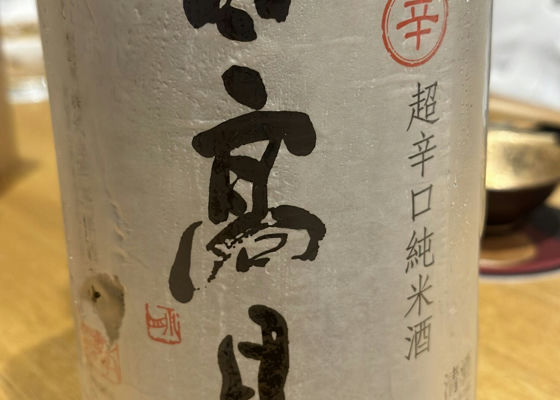 辛
超辛口純米酒
高